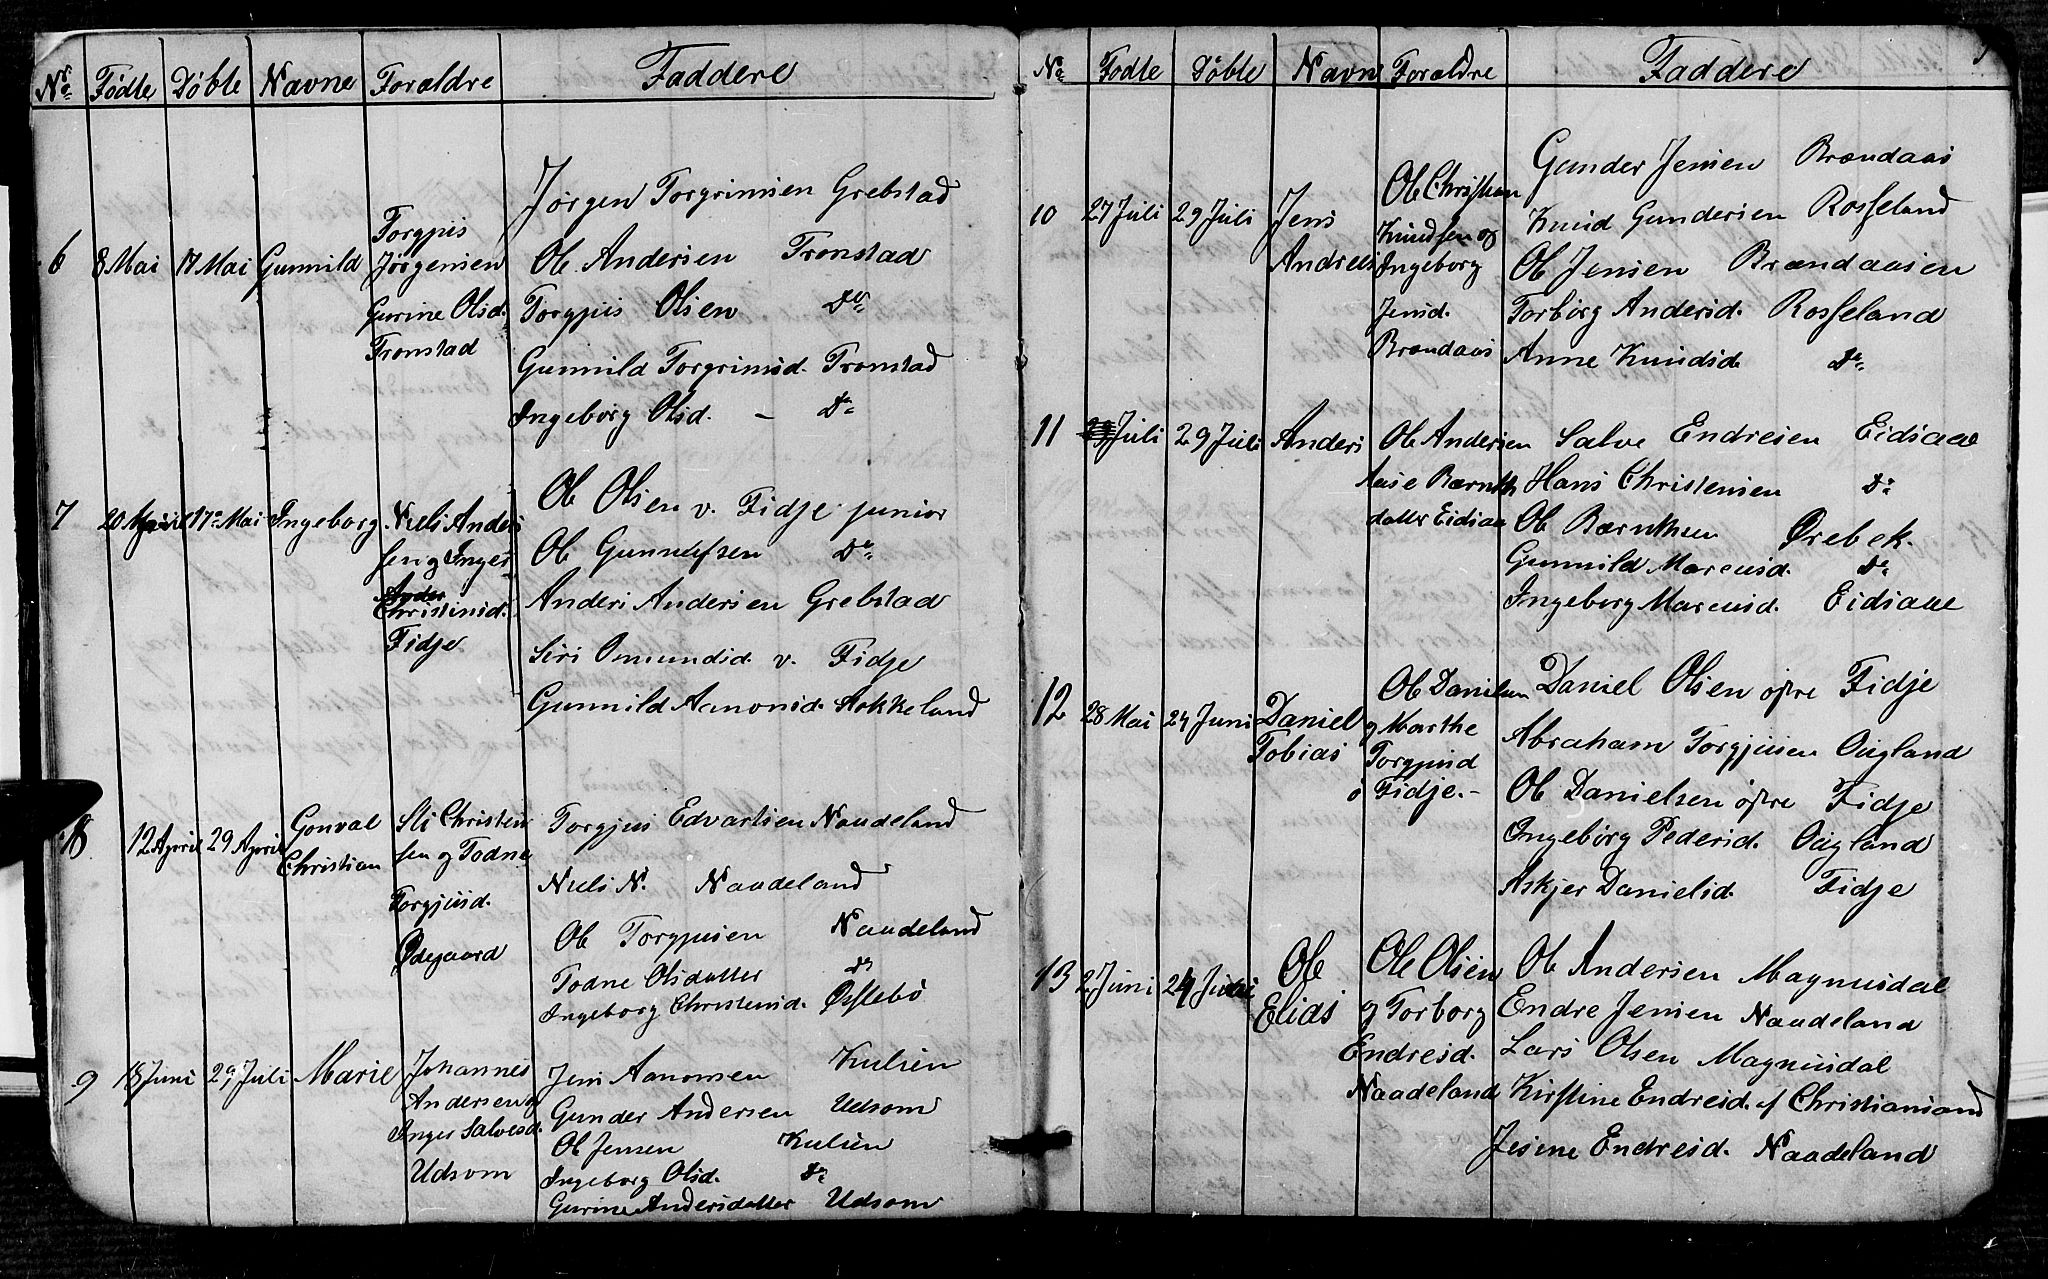 No. Fødte Døbte Navne Foraldre Faddere
6 8 Mai 17 Mai Gunnild
Torgjus
Jörgensen
Gurine Olsd.
Tronstad
Jørgen Torgrimsen Grebstad
Ole Andersen Tronstad
Torgjus Olsen Do
Gunnild Torgrimsd. Tronstad
Ingeborg Olsd. - Do
7 17de Mai Ingeborg
Niels Anders
sen og Inger
Christensd.
Fidje
Ole Olsen v. Fidje junior
Ole Gunnulfsen Do
Anders Andersen Grebstad
Siri Omundsd. v. Fidje
Gunnild Aanonsd. Aokkeland
8 12 April 29 April
Gonval
Christian
Sli Christen
sen og Todne
Torgjusd.
Ødegaard
Torgjus Edvartsen Naudeland
Niels N. Naadeland
Ole Torgjusen Naudeland
Todne Olsdatter Do
Ingeborg Christensd. Øfflebø
9 18 Juni 29 Juli Marie
Johannes
Andersen og
Inger Salvesd.
Udsom
Jens Aanonsen Kulien
Gunder Andersen Udsom
Ole Jensen Kulien
Ingeborg Olsd. Do
Gurine Andersdatter Udsom
No. Fødte Døbte Navn Foraldre Faddere
10 27 Juli 29 Juli
Jens
Andreas
Ole Christian
Knudsen og
Ingeborg
Jensd.
Brændaas
Gunder Jensen Brændaas
Knud Gundersen Rosseland
Ole Jensen Brændaasen
Torborg Andersd. Rosseland
Anne Knudsd. Do
11 Juli 29 Juli Anders
Ole Andersen
Aase Bærnth
datter Eidsaa
Salve Endresen Eidsaae
Hans Christensen Do
Ole Bærnthsen Ørebek.
Gunnild Marcusd. Do
Ingeborg Marcusd. Eidsaae
12 28 Mai 24 Juni
Daniel
Tobias
Ole Danielsen
og Marthe
Torgjusd
ö Fidje.-
Daniel Olsen öfre Fidje
Abraham Torgjusen Ougland
Ole Danielsen öfre Fidje
Ingeborg Pedersd. Ougland
Askjer Danielsd. Fidje
13 2 Juni 24
Ole
Elias
Ole Olsen
og Torborg
Endresd.
Naadeland
Ole Andersen Magnusdal
Endre Jensen Naudeland
Lars Olsen Magnusdal
Kirstine Endresd. af Christiansand
Jesine Endresd. Naadeland